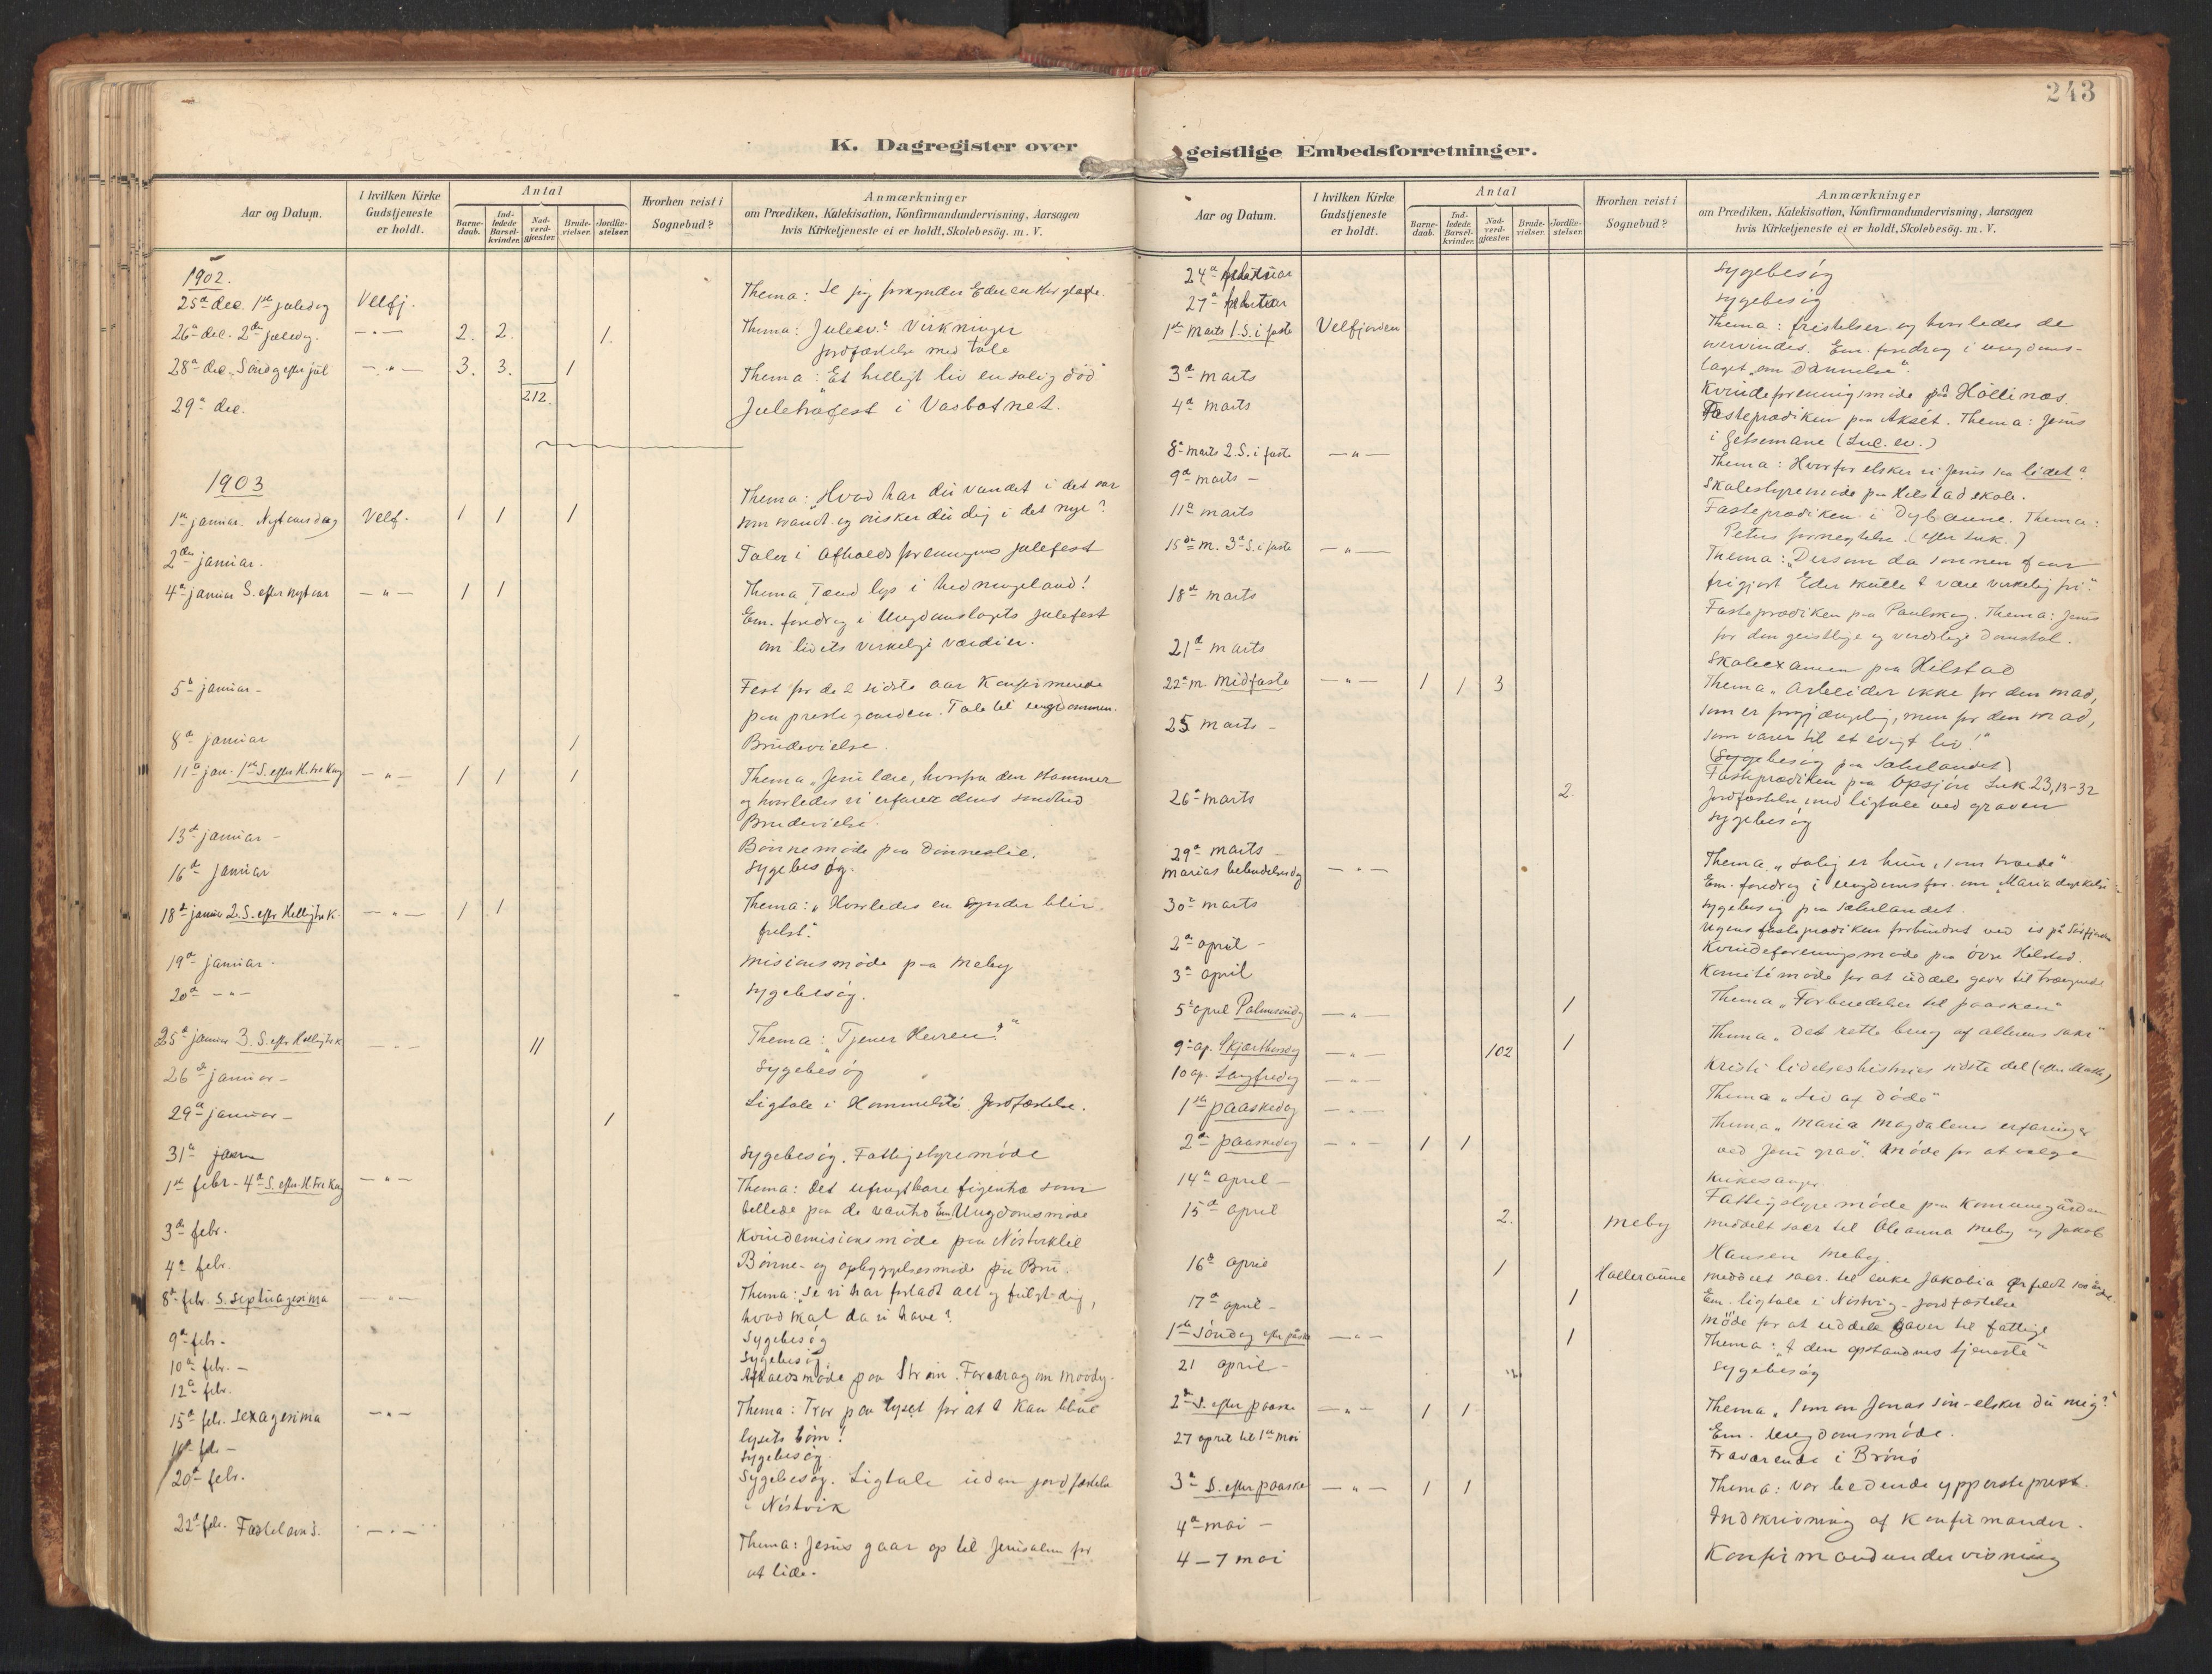 243
K. Dagregister over
geistlige Embedsforretninger.
Aar og Datum.
I hvilken Kirke Gudstjeneste er holdt.
Antal
Barne-daab.
Ind-ledede Barsel-kvinder.
Nad-verd-gjæster.
Brude-vielser.
Jordfæ-stelser.
Hvorhen reist i Sognebud?
Anmærkninger
om Prædiken, Katekisation, Konfirmandundervisning, Aarsagen
hvis Kirketjeneste ei er holdt, Skolebesög. m. V.
1902.
25de dec. 1ste juledag Velfj. Thema: Se jeg forkynder Eder en stor glæde.
26de dec. 2den juledag. — " — 2. 2. 1. Thema: Juleev. Virkninger
jordfæstelse med tale
28de dec. Söndag efter jul — " — 3. 3. 1 Thema: "Et helligt liv en salig död"
212.
29de dec. Juletræfest i Vasbotnet.
1903
Thema: "Hvad har du vundet i det aar
1ste januar. Nytaarsdag Velf. 1 1 1 som svandt og önsker du dig i det nye?
2den januar. Taler i Afholdsforeningens julefest
4de januar S. efter nytaar — " — 1 1 Thema "Tænd lys i hedningeland!
Em. foredrag i Ungdomslagets julefest
om livets virkelige værdier.
5te januar - Fest for de 2 sidste aar Konfirmerede
paa prestegaarden. Tale til ungdommen.
8de januar 1 Brudevielse.
11te jan. 1ste S. efter H. tre Kong — " — 1 1 1 Thema "Jesu lære, hvorfra den stammer
og hvorledes vi erfarer dens sandhed
Brudevielse.
13de januar - Bönnemöde paa Dönneslie.
16de januar Sygebesög.
18de januar 2. S. efter Helligtre K. — " — 1 1 Thema: "Hvorledes en synder blir
frelst."
19de januar. Misionsmöde paa Meby
20de — " — Sygebesög.
25de januar 3. S. efter Helligtre K — " — 11 Thema: "Tjener Herren!"
26de januar - Sygebesög
29de januar - 1 Ligtale i Hommelstö Jordfæstelse.
31te januar Sygebesög. Fattigstyremöde
1ste febr - 4de S. efter H. tre Kong — " — Thema: Det ufrugtbare figentræ som
billede paa de vantro Em Ungdomsmöde
3de febr. Kvindemisionsmöde paa Nöstviklie
4de febr. Bönne- og opbyggelsesmöde paa Brü.
8de febr. S. Septuagesima — " — Thema: "Se vi har forladt alt og fulgt dig,
hvad skal da vi have?
9de febr - Sygebesög
10de febr. - Sygebesög
12te febr. Afholdsmöde paa Ström. Foredrag om Moody.
15de febr. Sexagesima — " — Thema: Tror paa lyset for at I kan blive
lysets börn!
16de feb - Sygebesög.
20de febr. Sygebesög. Ligtale uden jordfæstelse
i Nöstvik
22de feb. Fastelavns. — " — Thema: Jesus gaar op til Jerusalem for
at lide.
24de februar Sygebesög
27de februar Sygebesög
1ste marts 1. S. i faste Velfjorden Thema: fristelser og hvorledes de
overvindes. Em. foredrag i ungdoms-
laget "om Dannelse".
3de marts Kvindeforeningsmöde på Hollinæs
4de marts Fasteprædiken paa Aksét. Thema: Jesus
i Getsemane (Luc. ev.)
8de marts 2. S. i faste — " — Thema: Hvorfor elsker vi Jesus saa lidet?
9de marts - Skolestyremöde paa Hilstad skole.
11te marts Fasteprædiken i Dybaune. Thema:
Peters fornegtelse. (efter Luk.)
15de m. 3de S. i faste — " — Thema: "Dersom da sönnen faar
frigjort Eder skulle I være virkelig fri."
18de marts Fasteprædiken paa Paulskog. Thema: Jesus
for den geistlige og verdslige domstol.
21de marts Skoleexamen paa Hilstad
22de m. Midfaste — " — 1 1 3 Thema "Arbeider ikke for den mad,
som er forgjængelig, men for den mad,
25 marts - som varer til et evigt liv!"
(Sygebesög paa Sæterlandet)
Fasteprædiken paa Opsjön Luk 23,13-32
26de marts 2. Jordfæstelse med ligtale ved graven
Sygebesög
29de marts -
Marias bebudelsesdag — " — Thema "salig er hun, som troede"
Em. foredrag i ungdomsfor. om "Mariadyrkelse
30te marts Sygebesög paa Sæterlandet.
Ugens fasteprædiken forhindret ved is på
2den april - Kvindeforeningsmöde paa övre Hilstad.
3de april Komitémöde for at uddele gaver til trængende
5te april Palmesöndag — " — 1 Thema "Forberedelse til paasken"
9de ap. Skjærthorsdag — " — 102 1 Thema "Det rette brug af alterens sakr"
10 ap. Langfredag — " — Kristi lidelseshistories sidste del (efter Matth)
1ste paaskedag — " — Thema "Liv af döde"
2den paaskedag — " — 1 1 Thema "Maria Magdalenes erfaringer
ved Jesu grav". Möde for at vælge
14de april - Kirkesanger.
15de april Fattigstyremöde paa Kommunegården
2. Meby Meddelt sacr til Oleanna Meby og Jakob
Hansen Meby.
16de april 1 Holleraune Meddelt sacr. til enke Jakobia
17de april - 1 Em. ligtale i Nöstvig - Jordfæstelse
Möde for at uddele gaver til fattige
1ste Söndag efter påske — " — 1 Thema: "I den opstandnes tjeneste"
21 april - Sygebesög
2den S. efter paaske — " — 1 1 Thema "Simon Jonas sön - elsker du mig?"
Em. Ungdomsmöde.
27 april til 1ste mai Fraværende i Brönö
3de S. efter paaske — " — 1 1 Thema: Vor bedende ypperstepræst.
4de mai - Indskrivning af Konfirmander.
4 - 7 mai Konfirmandundervisning